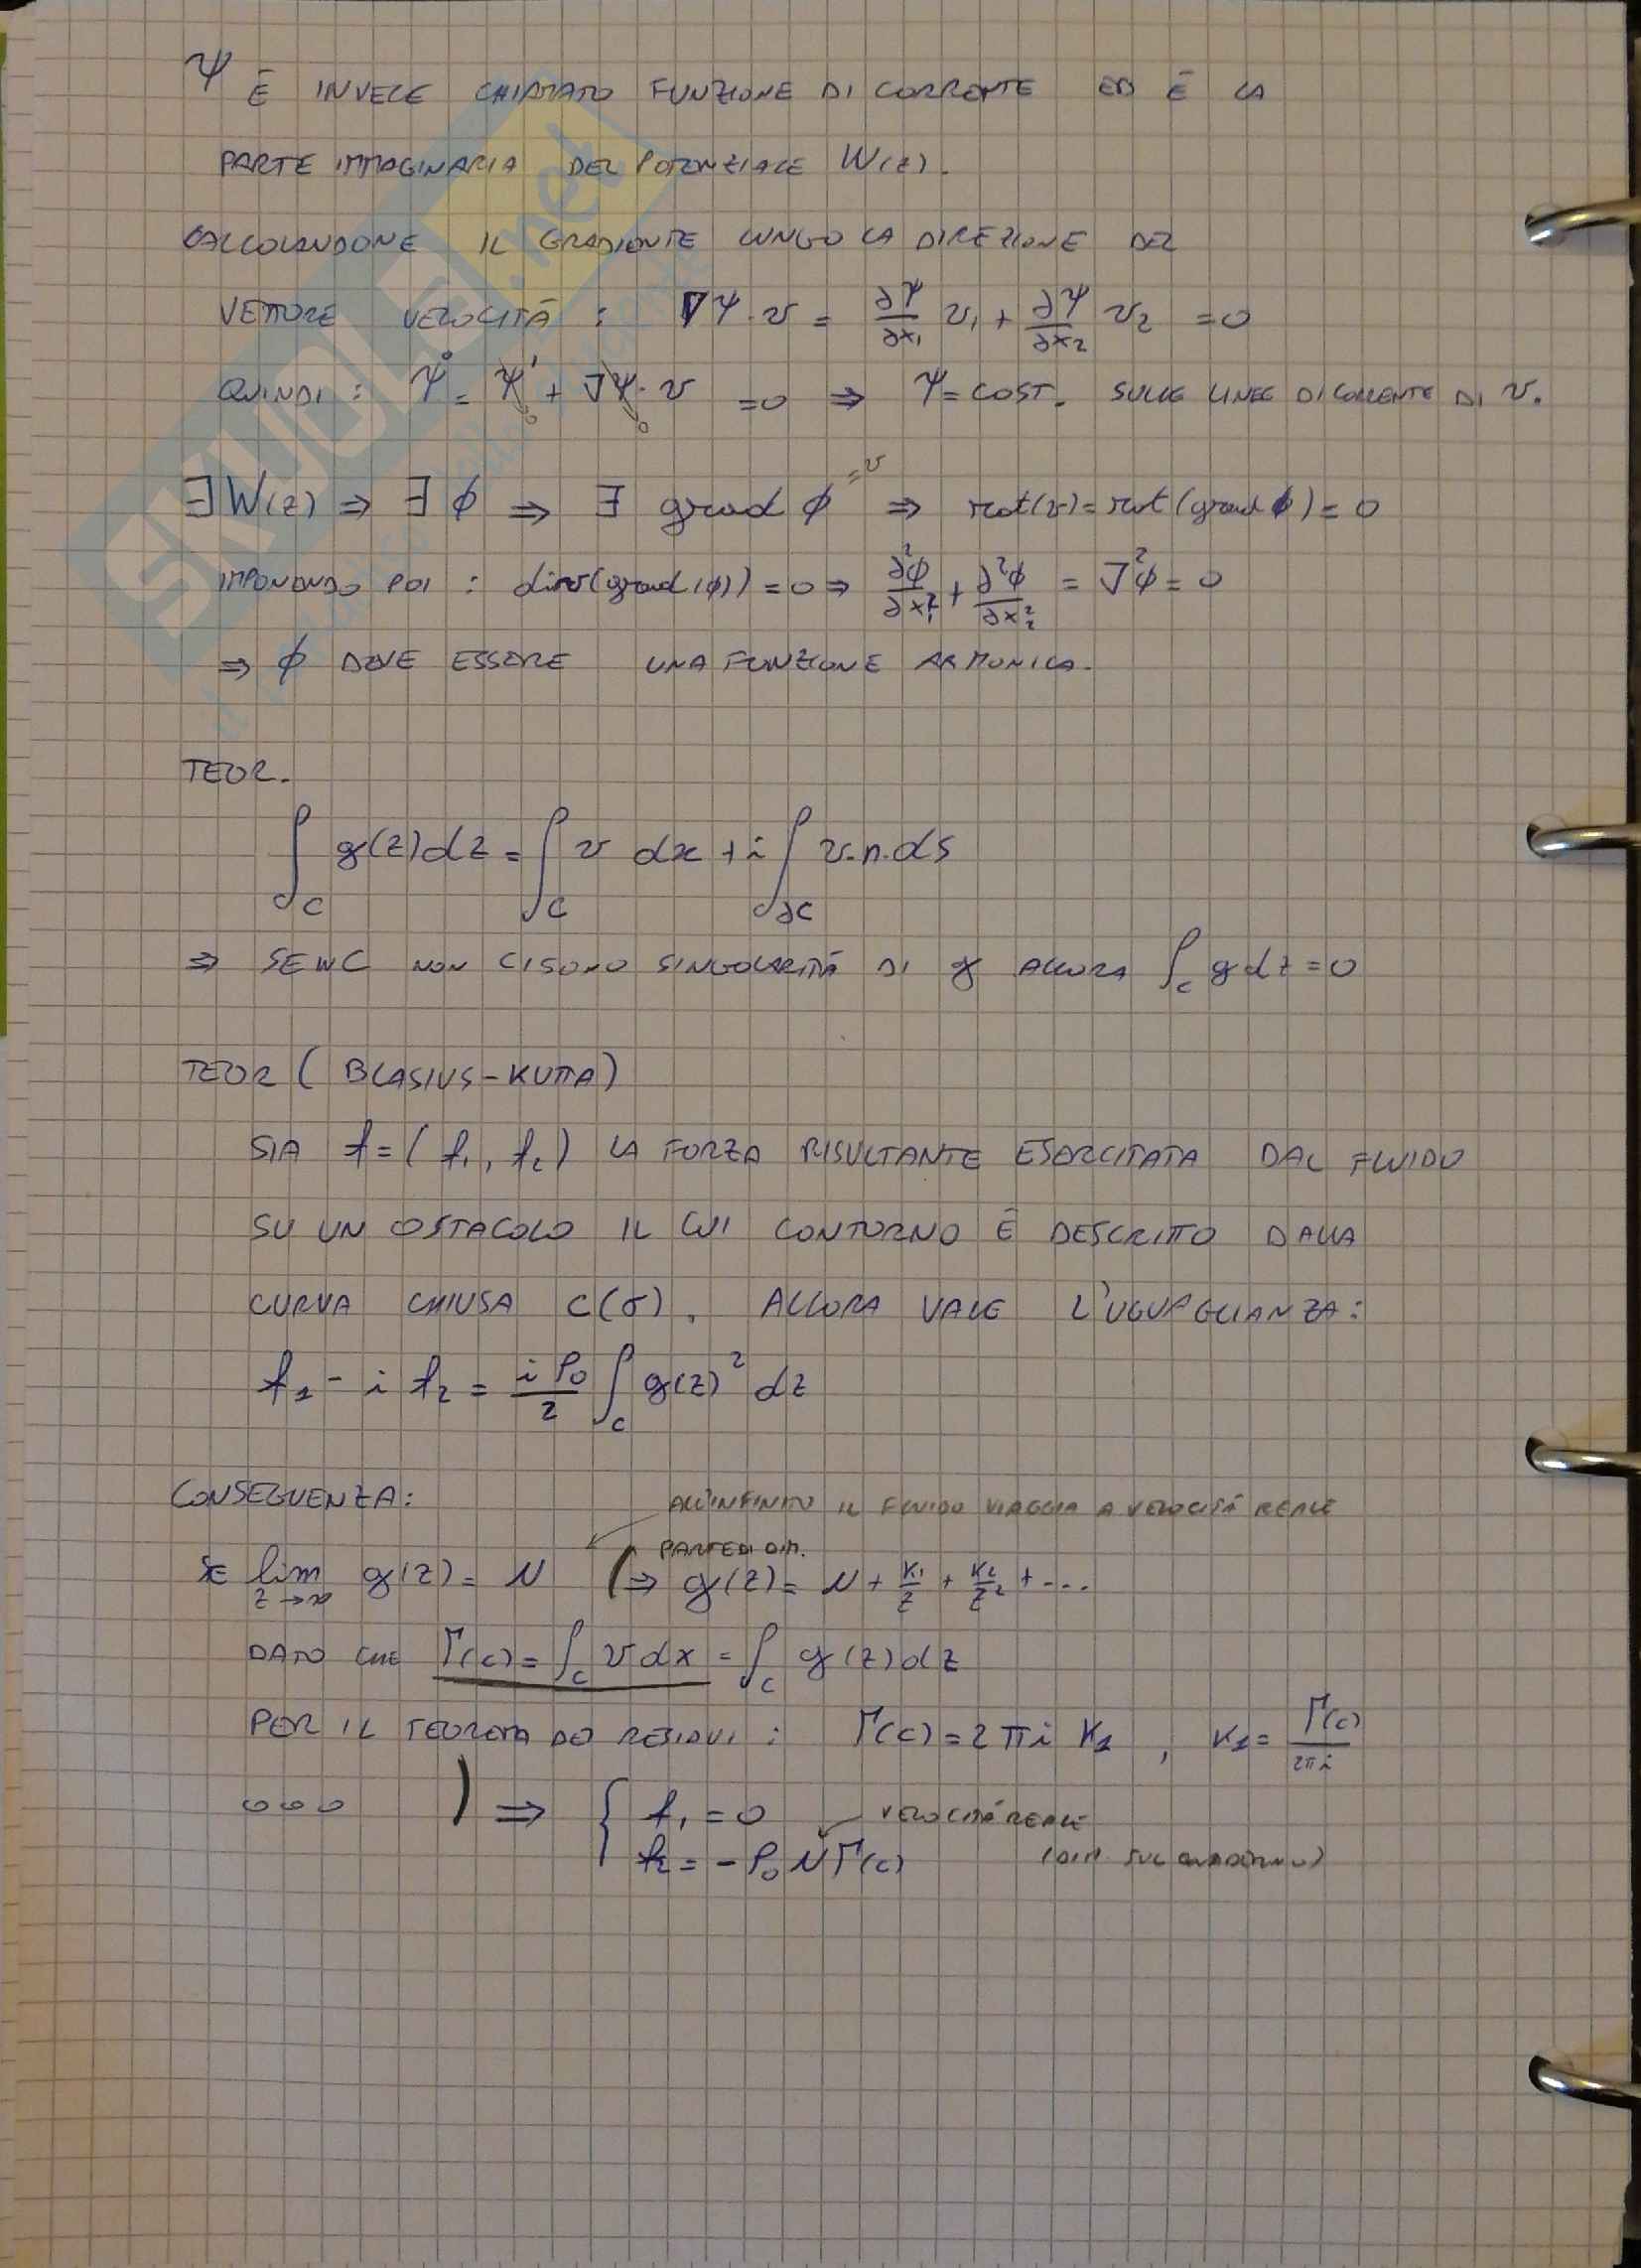 Ψ È INVECE CHIAMATO FUNZIONE DI CORRENTE ED È LA
PARTE IMMAGINARIA DEL POTENZIALE W(z).
CALCOLANDONE IL GRADIENTE LUNGO LA DIREZIONE DEL
VETTORE VELOCITÀ : ∇Ψ·v = ∂Ψ/∂x₁ v₁ + ∂Ψ/∂x₂ v₂ = 0
QUINDI : Ψ̊ = Ψ' + ∇Ψ·v = 0 ⇒ Ψ = COST. SULLE LINEE DI CORRENTE DI v.
∃ W(z) ⇒ ∃ ϕ ⇒ ∃ grad ϕ = v ⇒ rot(v) = rot(grad ϕ) = 0
IMPONENDO POI : div(grad(ϕ)) = 0 ⇒ ∂²ϕ/∂x₁² + ∂²ϕ/∂x₂² = ∇²ϕ = 0
⇒ ϕ DEVE ESSERE UNA FUNZIONE ARMONICA.
TEOR.
∫_C g(z)dz = ∫_C v dx + i ∫_∂C v·n·ds
⇒ SE IN C NON CI SONO SINGOLARITÀ DI g ALLORA ∫_C g dz = 0
TEOR (BLASIUS-KUTTA)
SIA f = (f₁, f₂) LA FORZA RISULTANTE ESERCITATA DAL FLUIDO
SU UN OSTACOLO IL CUI CONTORNO È DESCRITTO DALLA
CURVA CHIUSA C(σ). ALLORA VALE L'UGUAGLIANZA:
f₁ - i f₂ = iρ₀/2 ∫_C g(z)² dz
CONSEGUENZA:
ALL'INFINITO IL FLUIDO VIAGGIA A VELOCITÀ REALE
PARTE DI DIM.
SE lim z→∞ g(z) = N ( ⇒ g(z) = N + K₁/z + K₂/z² + ...
DATO CHE Γ(c) = ∫_C v dx = ∫_C g(z)dz
PER IL TEOREMA DEI RESIDUI : Γ(c) = 2πi K₁ , K₁ = Γ(c)/2πi
) ⇒ { f₁ = 0 VELOCITÀ REALE
f₂ = -ρ₀ N Γ(c) (DIM. SUL QUADERNO)
SKUOLA.net